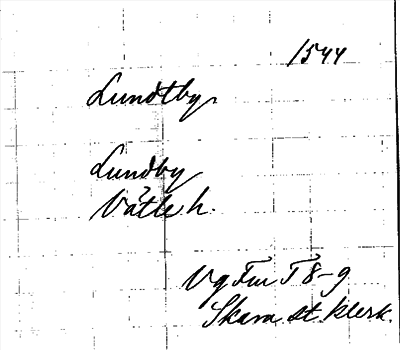 1544
Lundtby
Lundby
Vättle h.
Vg Fm T 8-9
Skara st. klerk.